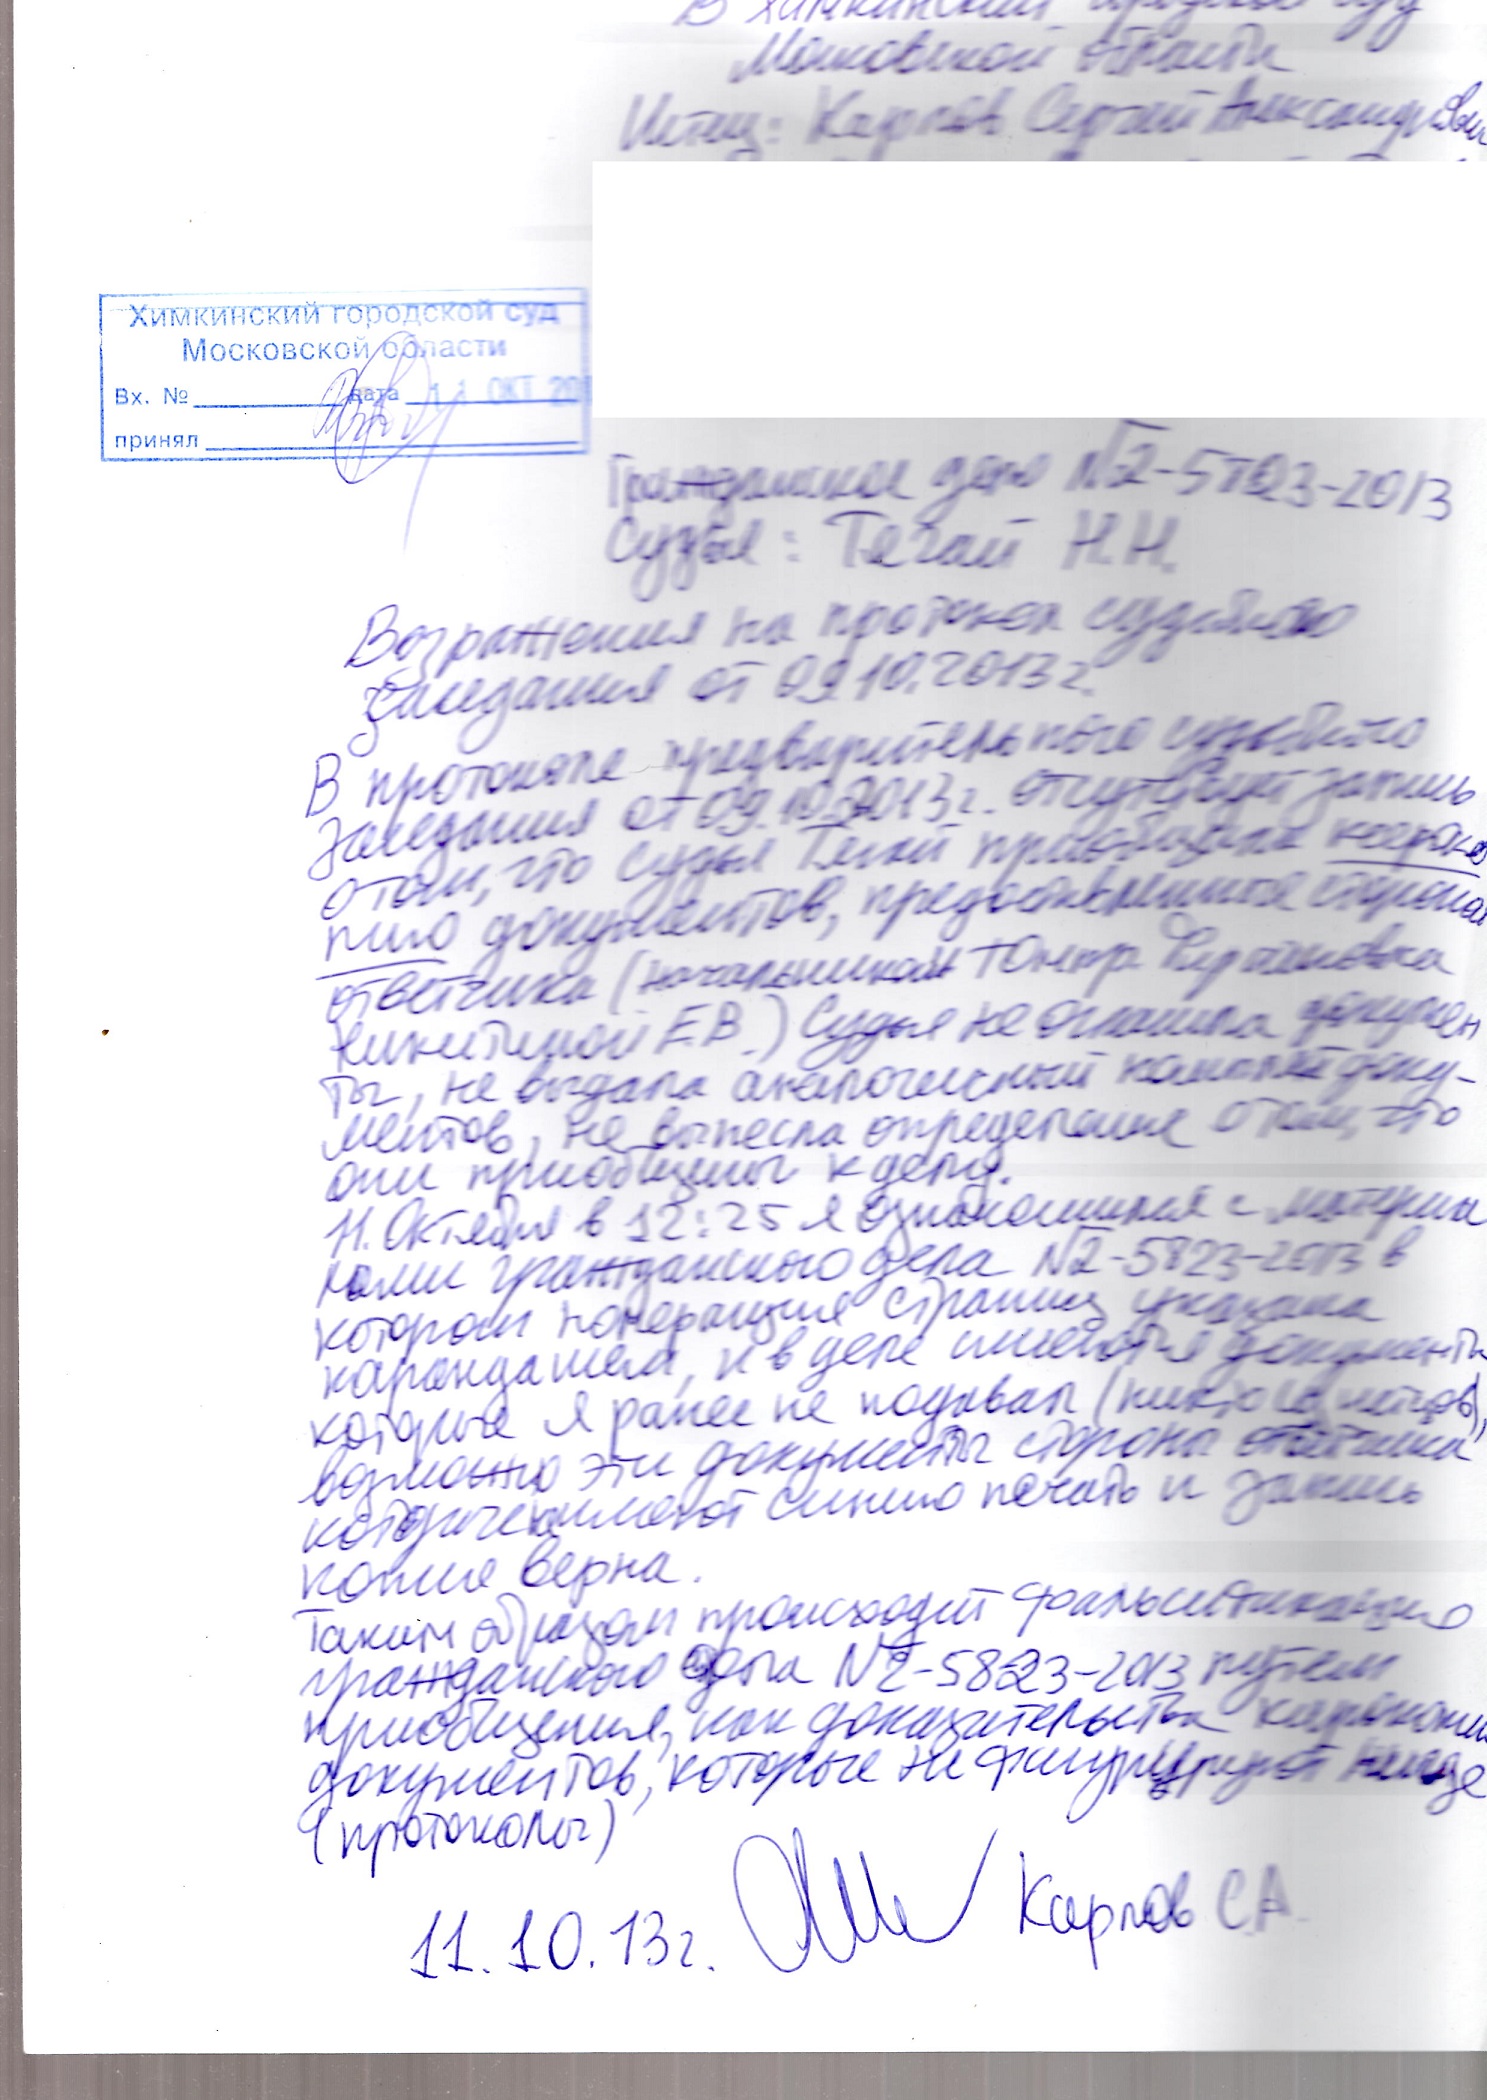 В Химкинский городской суд
Московской области
Истец: Карпов Сергей Александрович
Химкинский городской суд
Московской области
Вх. № дата 11 ОКТ 20
принял
Гражданское дело №2-5823-2013
Судья: Тягай Н.Н.
Возражения на протокол судебного
заседания от 09.10.2013г.
В протоколе предварительного судебного
заседания от 09.10.2013г. отсутствует запись
о том, что судья Тягай приобщила ксероко
пию документов, предоставленная стороной
ответчика (начальником
Никитиной Е.В.) Судья не огласила докумен
ты, не выдала аналогичный комплект доку-
ментов, не вынесла определение о том, что
они приобщены к делу.
11. Октября в 12:25 я ознакомился с материа
лами гражданского дела №2-5823-2013 в
котором нумерация страниц указана
карандашем, и в деле имеются документы
которые я ранее не подавал (никто из истцов),
возможно эти документы стороны ответчика
которые имеют синию печать и запись
копия верна.
Таким образом происходит фальсификацию
гражданского дела №2-5823-2013 путем
приобщения, как доказательства ксерокопии
документов, которые не фигурируют нигде
(протоколы)
11.10.13г. Карпов С.А.